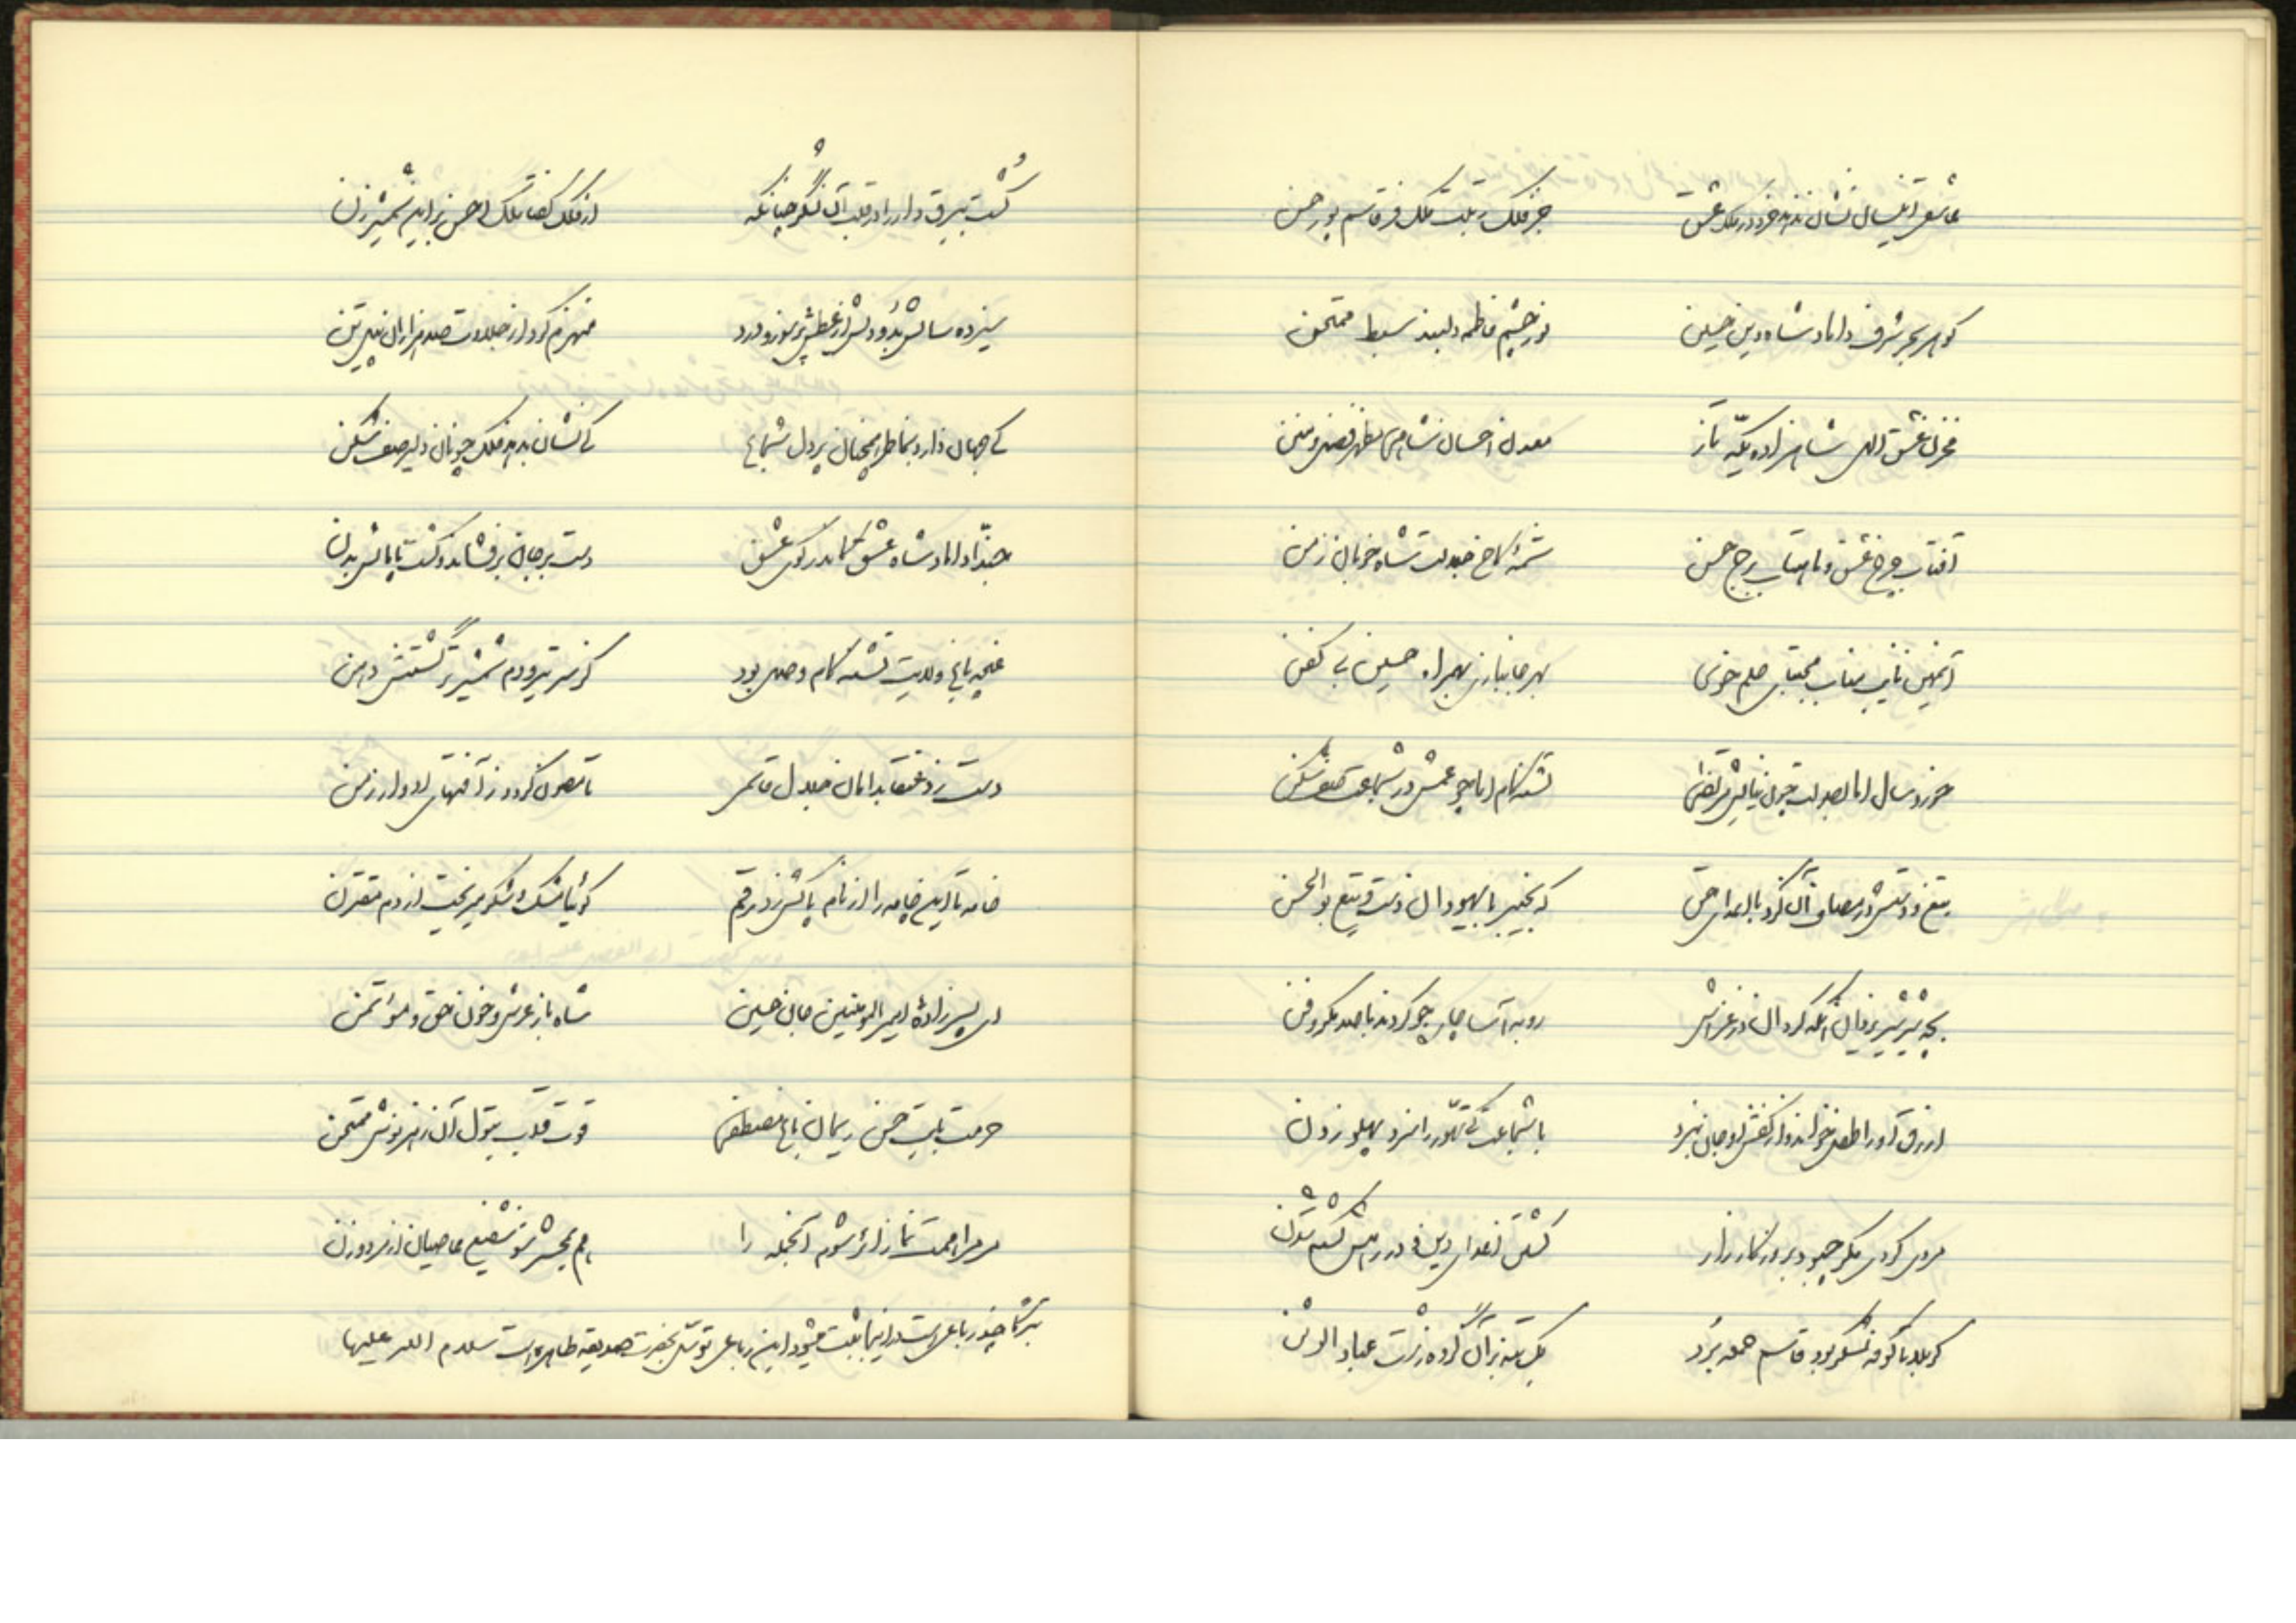 عاشق اینسان نشان ندهد خرد در ملک عشق جز فلک رتبت ملک فر قاسم پور حسن
گوهر بحر شرف داماد شاه دین حسین نور چشم فاطمه دلبند سبط ممتحن
مخزن عشق الهی شاهزاده یکّه تاز معدن احسان نشاهی مظهر فضل و منن
آفتاب چرخ عشق و ماهتاب برج حسن شمهٔ کاخ جلالت شاه خوبان زمن
نایب مناب مجتبای حلم خوی بهر جانبازی بهمراه حسین بی کفن
خورد سال اما بصولت چون نیایش مرتضی تشنه کام اما چو عمش در شجاعت صف شکن
تیغ و دستش در مصاف آن کرد با اعدای حق که بخیبر با یهودان دست و تیغ بوالحسن
بچه شیر شیر یزدان آنکه گردان در غزاش روبه آسا چاره جو گردند با صد مکر و فن
ازرق او را طفل خواند و از کفش او جان نبرد با شجاعت کی تهوّر را سزد پهلو زدن
مردی کردی مگر چبود بروز کارزار کشتن اعدای دین در راهش کشته شدن
کربلا یا کوفه لشکر بود قاسم حمله برد یک تنه بر آن گروه زشت عباد الوثن
کشت بیرق دار را در قلب آن لشگر چنانکه از فلک گفتا ملک احسن بر این شمشیر زن
سیزده سالش بُد و دلش از عطش پر سوز و درد منهزم کرد از جلادت صد هزاران پیلتن
کی جهان دارد بخاطر همچنان پر دل شجاع کی نشان بدهد فلک چونان دلیر صف شکن
حبّذا داماد شاه عشق کاندر کوی عشق دست بر جان برفشاند و گشت پامالش بدن
غنچه باغ ولایت تشنه کام وصل بود کز سر تیر و دم شمشیر تر گشتش دهن
دست زد عنقا بدامان جلال قاسمی تا مصون گردد ز آفتهای ادوار زمن
خامه تا این چامه را از نام پاکش زد رقم گوئیا مشک و شکر میریخت از دم متقرن
ای پسرزادهٔ امیرالمؤمنین جان حسین شاه باز عرش و خون حق و مؤتمن
حرمت بیت حسن ریحان باغ مصطفی قوت قلب بتول آن زهر نوش ممتحن
مرمرا همت نما زائر شوم آنجمله را هم بمحشر شو شفیع عاصیان از مرد و زن
تبرّکا چند رباعی است در اینجا ثبت میشود این رباعی توسّل بحضرت صدیقه طاهره است سلام الله علیها